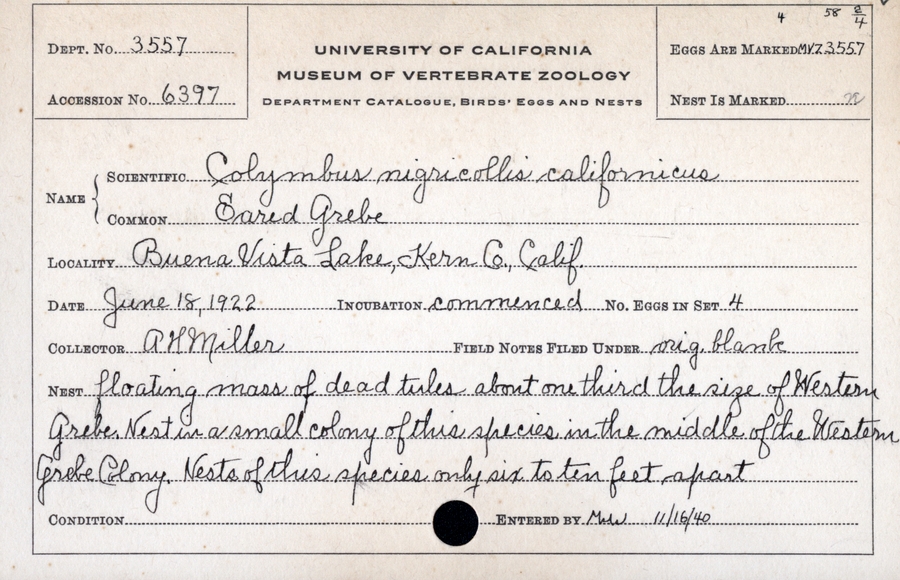 4 58 2/4
DEPT. NO. 3557
UNIVERSITY OF CALIFORNIA
MUSEUM OF VERTEBRATE ZOOLOGY
DEPARTMENT CATALOGUE, BIRDS' EGGS AND NESTS
EGGS ARE MARKED MVZ3557
ACCESSION NO. 6397
NEST IS MARKED
NAME
SCIENTIFIC Colymbus nigricollis californicus
COMMON Eared Grebe
LOCALITY Buena Vista Lake, Kern Co., Calif.
DATE June 18, 1922 INCUBATION commenced NO. EGGS IN SET 4
COLLECTOR A H Miller FIELD NOTES FILED UNDER orig. blank
NEST floating mass of dead tules about one third the size of Western
Grebe. Nest in a small colony of this species in the middle of the Western
Grebe Colony. Nests of this species only six to ten feet apart
CONDITION ENTERED BY 11/16/40